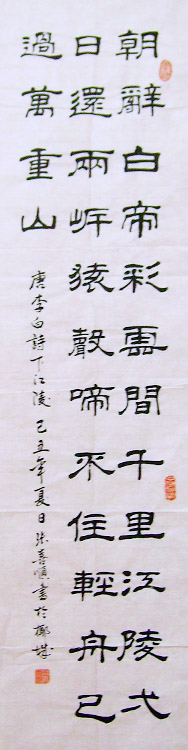 朝辭白帝彩雲間千里江陵弌
日還兩岸猿聲啼不住輕舟已
過萬重山
唐李白詩下江陵 己丑年夏日 喜順書於椰城